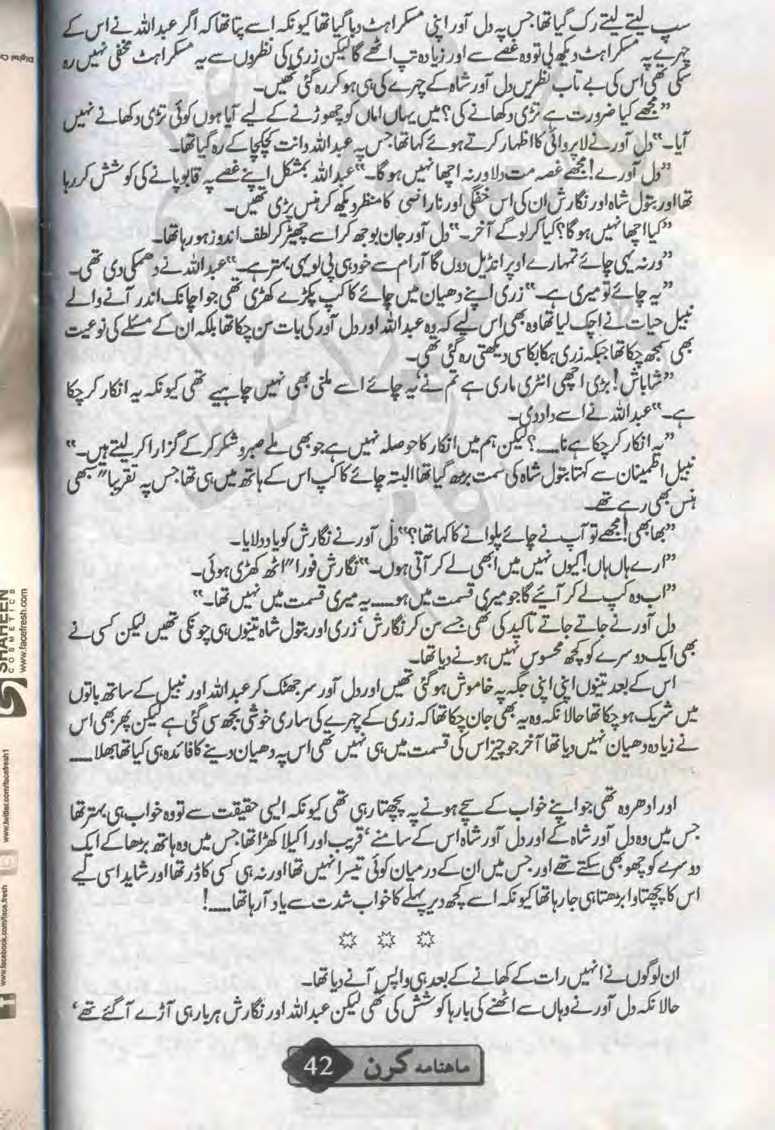 سپ لیتے لیتے رک گیا تھا جس پہ دل آور اپنی مسکراہٹ دبا گیا تھا کیونکہ اسے پتا تھا کہ اگر عبداللہ نے اس کے
چہرے پہ مسکراہٹ دیکھ لی تو وہ غصے سے اور زیادہ تپ اٹھے گا لیکن زری کی نظروں سے یہ مسکراہٹ مخفی نہیں رہ
سکی تھی اس کی بے تاب نظریں دل آور شاہ کے چہرے کی ہی ہو کر رہ گئی تھیں۔
”مجھے کیا ضرورت ہے تڑی دکھانے کی؟ میں یہاں اماں کو چھوڑنے کے لیے آیا ہوں کوئی تڑی دکھانے نہیں
آیا۔“ دل آور نے لاپروائی کا اظہار کرتے ہوئے کہا تھا جس پہ عبداللہ دانت کچکچا کے رہ گیا تھا۔
”دل آورے! مجھے غصہ مت دلا ورنہ اچھا نہیں ہو گا۔“ عبداللہ بمشکل اپنے غصے پہ قابو پانے کی کوشش کر رہا
تھا اور بتول شاہ اور نگارش ان کی اس خفگی اور ناراضی کا منظر دیکھ کر ہنس پڑی تھیں۔
”کیا اچھا نہیں ہو گا؟ کیا کر لو گے آخر۔“ دل آور جان بوجھ کر اسے چھیڑ کر لطف اندوز ہو رہا تھا۔
”ورنہ یہی چائے تمہارے اوپر انڈیل دوں گا آرام سے خود ہی پی لو یہی بہتر ہے۔“ عبداللہ نے دھمکی دی تھی۔
”یہ چائے تو میری ہے۔“ زری اپنے دھیان میں چائے کا کپ پکڑے کھڑی تھی جو اچانک اندر آنے والے
نبیل حیات نے اچک لیا تھا وہ بھی اس لیے کہ وہ عبداللہ اور دل آور کی بات سن چکا تھا بلکہ ان کے مسئلے کی نوعیت
بھی سمجھ چکا تھا جبکہ زری ہکا بکا سی دیکھتی رہ گئی تھی۔
”شاباش! بڑی اچھی انٹری ماری ہے تم نے‘ یہ چائے اسے ملنی بھی نہیں چاہیے تھی کیونکہ یہ انکار کر چکا
ہے۔“ عبداللہ نے اسے داد دی۔
”یہ انکار کر چکا ہے نا....؟ لیکن ہم میں انکار کا حوصلہ نہیں ہے جو بھی ملے صبر و شکر کر کے گزارا کر لیتے ہیں۔“
نبیل اطمینان سے کہتا بتول شاہ کی سمت بڑھ گیا تھا البتہ چائے کا کپ اس کے ہاتھ میں ہی تھا جس پہ تقریبا″ سبھی
ہنس بھی رہے تھے۔
”بھابھی! مجھے تو آپ نے چائے پلوانے کا کہا تھا؟“ دل آور نے نگارش کو یاد دلایا۔
”ارے ہاں ہاں! کیوں نہیں میں ابھی لے کر آتی ہوں۔“ نگارش فورا″ اٹھ کھڑی ہوئی۔
”اب وہ کپ لے کر آئیے گا جو میری قسمت میں ہو.... یہ میری قسمت میں نہیں تھا۔“
دل آور نے جاتے جاتے تاکید کی تھی جسے سن کر نگارش‘ زری اور بتول شاہ تینوں ہی چونکی تھیں لیکن کسی نے
بھی ایک دوسرے کو کچھ محسوس نہیں ہونے دیا تھا۔
اس کے بعد تینوں اپنی اپنی جگہ پہ خاموش ہو گئی تھیں اور دل آور سر جھٹک کر عبداللہ اور نبیل کے ساتھ باتوں
میں شریک ہو چکا تھا حالانکہ وہ یہ بھی جان چکا تھا کہ زری کے چہرے کی ساری خوشی بجھ سی گئی ہے لیکن پھر بھی اس
نے زیادہ دھیان نہیں دیا تھا آخر جو چیز اس کی قسمت میں ہی نہیں تھی اس پہ دھیان دینے کا فائدہ ہی کیا تھا بھلا....
اور ادھر وہ تھی جو اپنے خواب کے سچے ہونے پہ پچھتا رہی تھی کیونکہ ایسی حقیقت سے تو وہ خواب ہی بہتر تھا
جس میں وہ دل آور شاہ کے اور دل آور شاہ اس کے سامنے‘ قریب اور اکیلا کھڑا تھا جس میں وہ ہاتھ بڑھا کے ایک
دوسرے کو چھو بھی سکتے تھے اور جس میں ان کے درمیان کوئی تیسرا نہیں تھا اور نہ ہی کسی کا ڈر تھا اور شاید اسی لیے
اس کا پچھتاوا بڑھتا ہی جا رہا تھا کیونکہ اسے کچھ دیر پہلے کا خواب شدت سے یاد آ رہا تھا....!
☼ ☼ ☼
ان لوگوں نے انہیں رات کے کھانے کے بعد ہی واپس آنے دیا تھا۔
حالانکہ دل آور نے وہاں سے اٹھنے کی بارہا کوشش کی تھی لیکن عبداللہ اور نگارش ہر بار ہی آڑے آ گئے تھے‘
ماہنامہ کرن 42
SHAHEEN
COSMETICS
www.facefresh.com
www.twitter.com/facefresh1
www.facebook.com/face.fresh